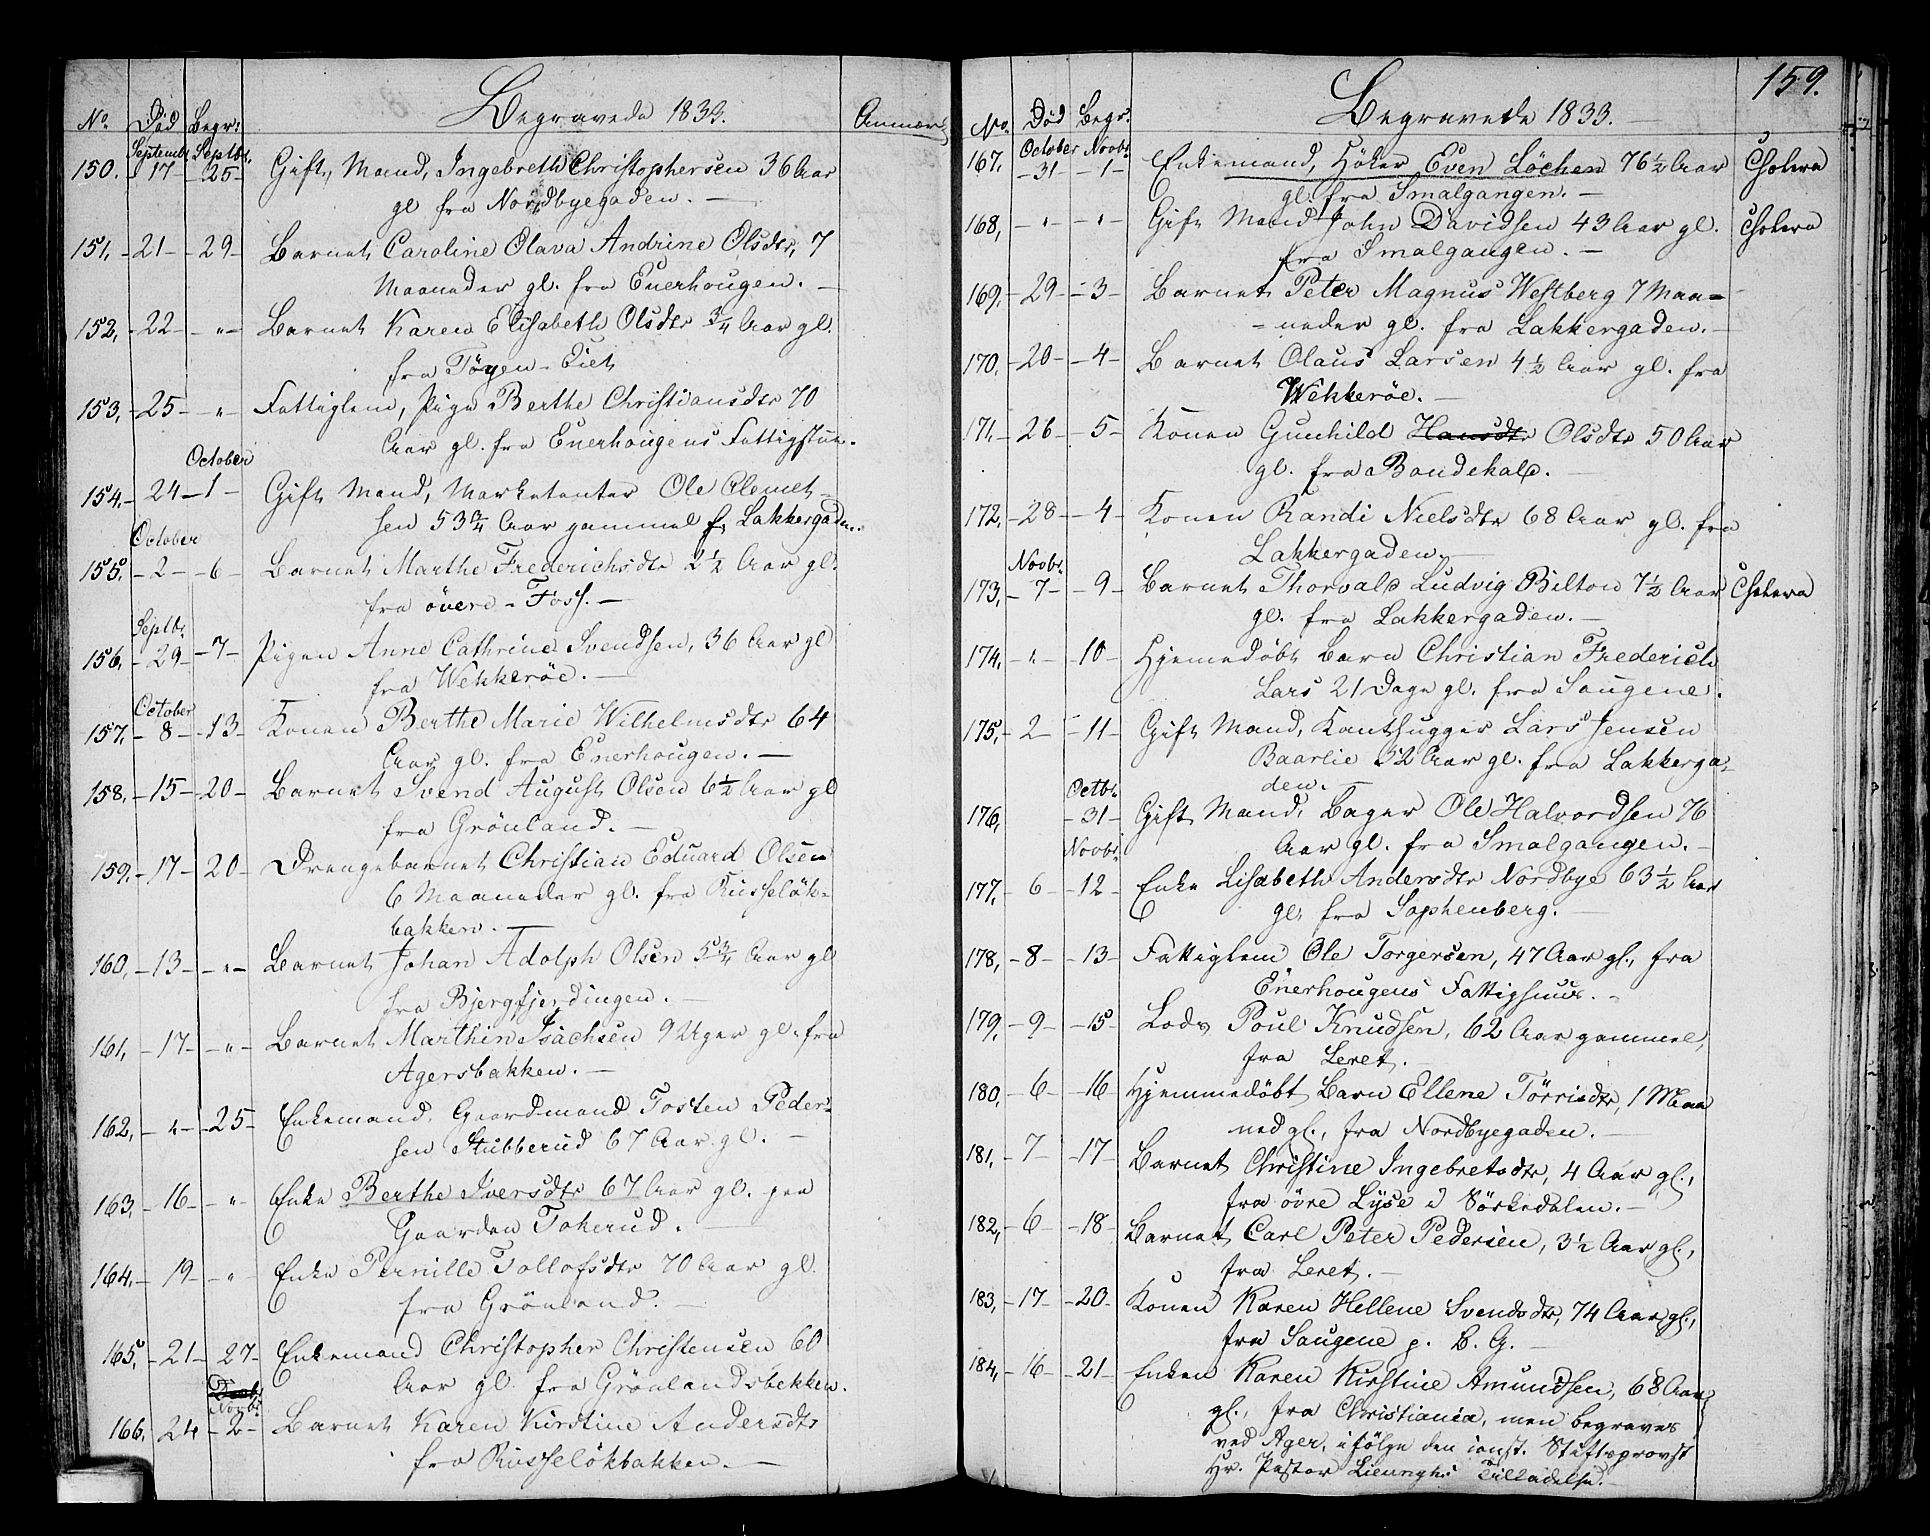 Begravede 1833.
No. Død Begr: Anmærk
Septembr Septbr.
150. 17 25 Gift Mand, Ingebreth Christophersen 36 Aar
gl fra Nordbyegaden.
151, 21 29 Barnet Caroline Olava Andrine Olsdtr, 7
Maaneder gl. fra Enerhougen.
152, 22 " Barnet Karen Elisabeth Olsdtr 3/4 Aar gl.
fra Tøyen-Eiet
153, 25 " Fattiglem, Pige Berthe Christiansdtr 70
Aar gl. fra Enerhougens Fattigstue.
October
154. 24 1 Gift Mand, Marketenter Ole Clemet-
sen 53 3/4 Aar gammel f. Lakkergaden.
October
155. 2 6 Barnet Marthe Frederichsdtr 2 1/2 Aar gl.
fra övere-Foss.
Septbr.
156, 29 7 Pigen Anne Cathrine Svendsen, 36 Aar gl
fra Wekkeröe.
October
157, 8 13 Konen Berthe Marie Wilhelmsdtr 64
Aar gl. fra Enerhougen.
158, 15 20 Barnet Svend August Olsen 6 1/2 Aar gl
fra Grönland.
159, 17 20 Drengebarnet Christian Eduard Olsen
6 Maaneder gl. fra Russelök-
bakken.
160, 13 " Barnet Johan Adolph Olsen 5 3/4 Aar gl
fra Bjergfjerdingen.
161, 17 " Barnet Marthin Isachsen 9 Uger gl. fra
Agersbakken.
162, " 25 Enkemand, Gaardmand Tosten Peder-
sen Stubberud 67 Aar gl.
163, 16 " Enke Berthe Iversdtr 67 Aar gl. paa
Gaarden Tokerud.
164. 19 " Enke Pernille Tollofsdtr 70 Aar gl.
fra Grönland.
165, 21 27 Enkemand Christopher Christensen 60
Aar gl. fra Grönlandsbekken.
Novbr.
166. 24 2 Barnet Karen Kirstine Andersdtr
fra Russelökbakken.
159.
Begravede 1833.
No. Död Begr.
October Novbr.
167. 31 1 Enkemand, Höker Even Löchen 76 1/2 Aar Cholera
gl. fra Smalgangen.
168, " " Gift Mand John Davidsen 43 Aar gl. Cholera
fra Smalgangen.
169, 29 3 Barnet Peter Magnus Westberg 7 Maa=
=neder gl. fra Lakkergaden.
170, 20 4 Barnet Olaus Larsen 4 1/2 Aar gl. fra
Wekkeröe.
171, 26 5 Konen Gunhild Hansdtr Olsdtr 50 Aar
gl. fra Bondekald.
172, 28 4 Konen Randi Nielsdtr 68 Aar gl. fra
Lakkergaden.
Novbr.
173, 7 9 Barnet Thorvald Ludvig Bilton 7 1/2 Aar Cholera
gl. fra Lakkergaden.
174, " 10 Hjemedöbt Barn Christian Frederich
Lars 21 Dage gl. fra Saugene.
175, 2 11 Gift Mand, Kanthugger Lars Jensen
Baarlie 52 Aar gl. fra Lakkerga-
den.
Octbr.
176, 31 Gift Mand, Bager Ole Halvordsen 76
Aar gl. fra Smalgangen.
Novbr.
177, 6 12 Enke Lisabeth Andersdtr Nordbye 63 1/2 Aar
gl. fra Sophenberg.
178, 8 13 Fattiglem Ole Torgersen, 47 Aar gl., fra
Enerhougens Fattighuus.
179, 9 15 Lods Poul Knudsen, 62 Aar gammel,
fra Leret.
180, 6 16 Hjemmedöbt Barn Ellene Törrisdtr, 1 Maa
ned gl., fra Nordbyegaden.
181, 7 17 Barnet Christine Ingebretsdtr, 4 Aar gl.,
fra övre Lyse i Sörkedalen.
182, 6 18 Barnet Carl Peter Pedersen, 3 1/2 Aar gl.,
fra Leret.
183, 17 20 Konen Karen Hellene Svendsdtr, 74 Aar gl.,
fra Saugene p. B. G.
184, 16 21 Enken Karen Kirstine Amundsen, 68 Aar
gl., fra Christiania, men begraves
ved Ager, i fölge den const. Stiftsprovst
Hr. Pastor Lieunghs Tilladelse.